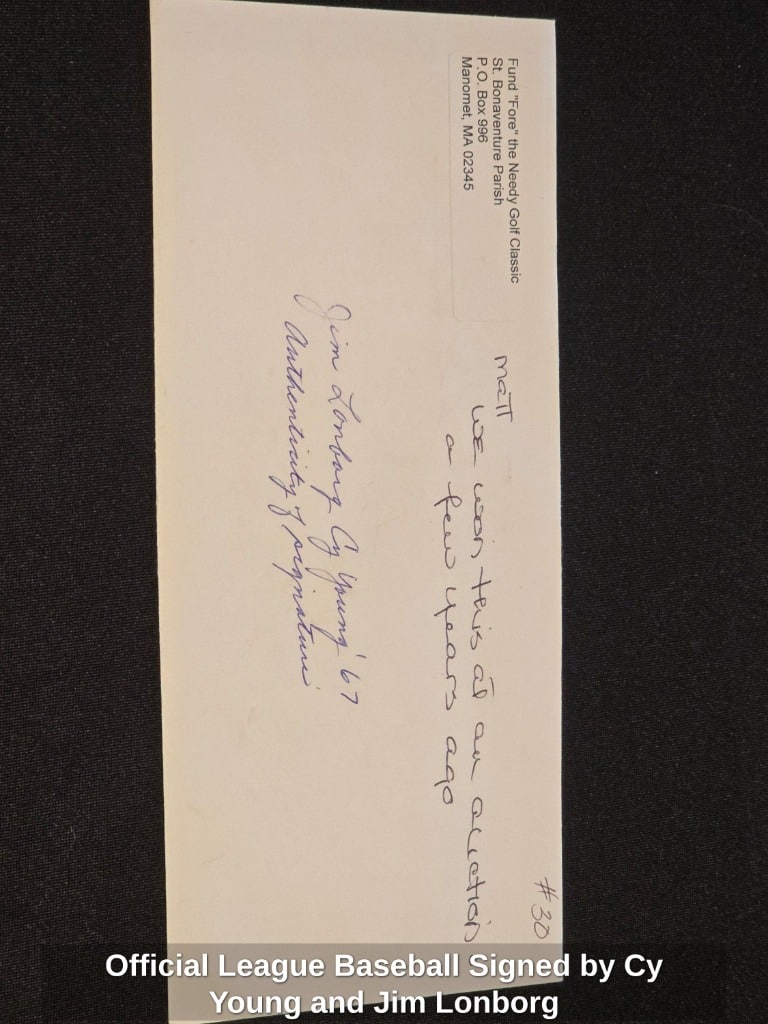 Fund "Fore" the Needy Golf Classic
St. Bonaventure Parish
P.O. Box 996
Manomet, MA 02345
#30
Matt
we won this at an auction
a few years ago
Jim Lonborg Cy Young '67
Authenticity of signature
Official League Baseball Signed by Cy
Young and Jim Lonborg